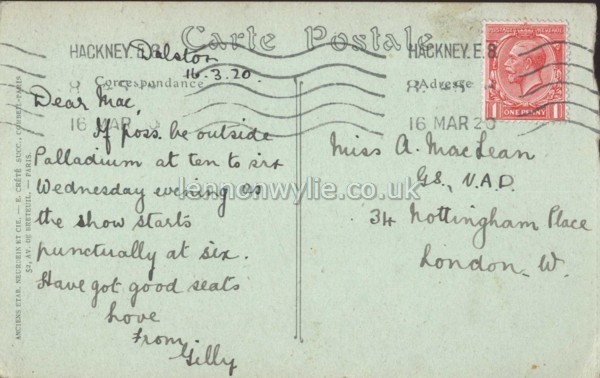 HACKNEY. E.8.
HACKNEY. E.8.
Carte Postale
Correspondance
Adresse
16 MAR
16 MAR 20
POSTAGE
REVENUE
1 ONE PENNY 1
Dalston
16.3.20.
Dear Mac,
If poss. be outside
Palladium at ten to six
Wednesday evening as
the show starts
punctually at six.
Have got good seats
Love
From
Gilly
Miss A. MacLean
G.S., V.A.D.
34 Nottingham Place
London. W.
lennonwylie.co.uk
ANCIENS ETAB. NEURDEIN ET CIE. — E. CRÉTÉ SUCC., CORBEIL-PARIS
52, AV. DE BRETEUIL. — PARIS.